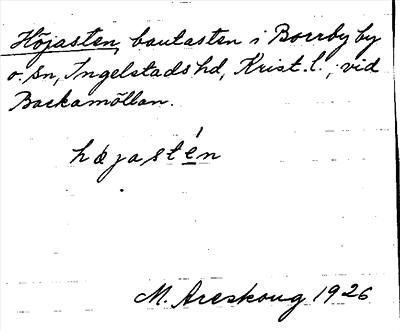 Höjasten, bautasten i Borrby by
o. sn, Ingelstads hd, Krist. l., vid
Backamöllan.
højastén
M. Areskoug 1926